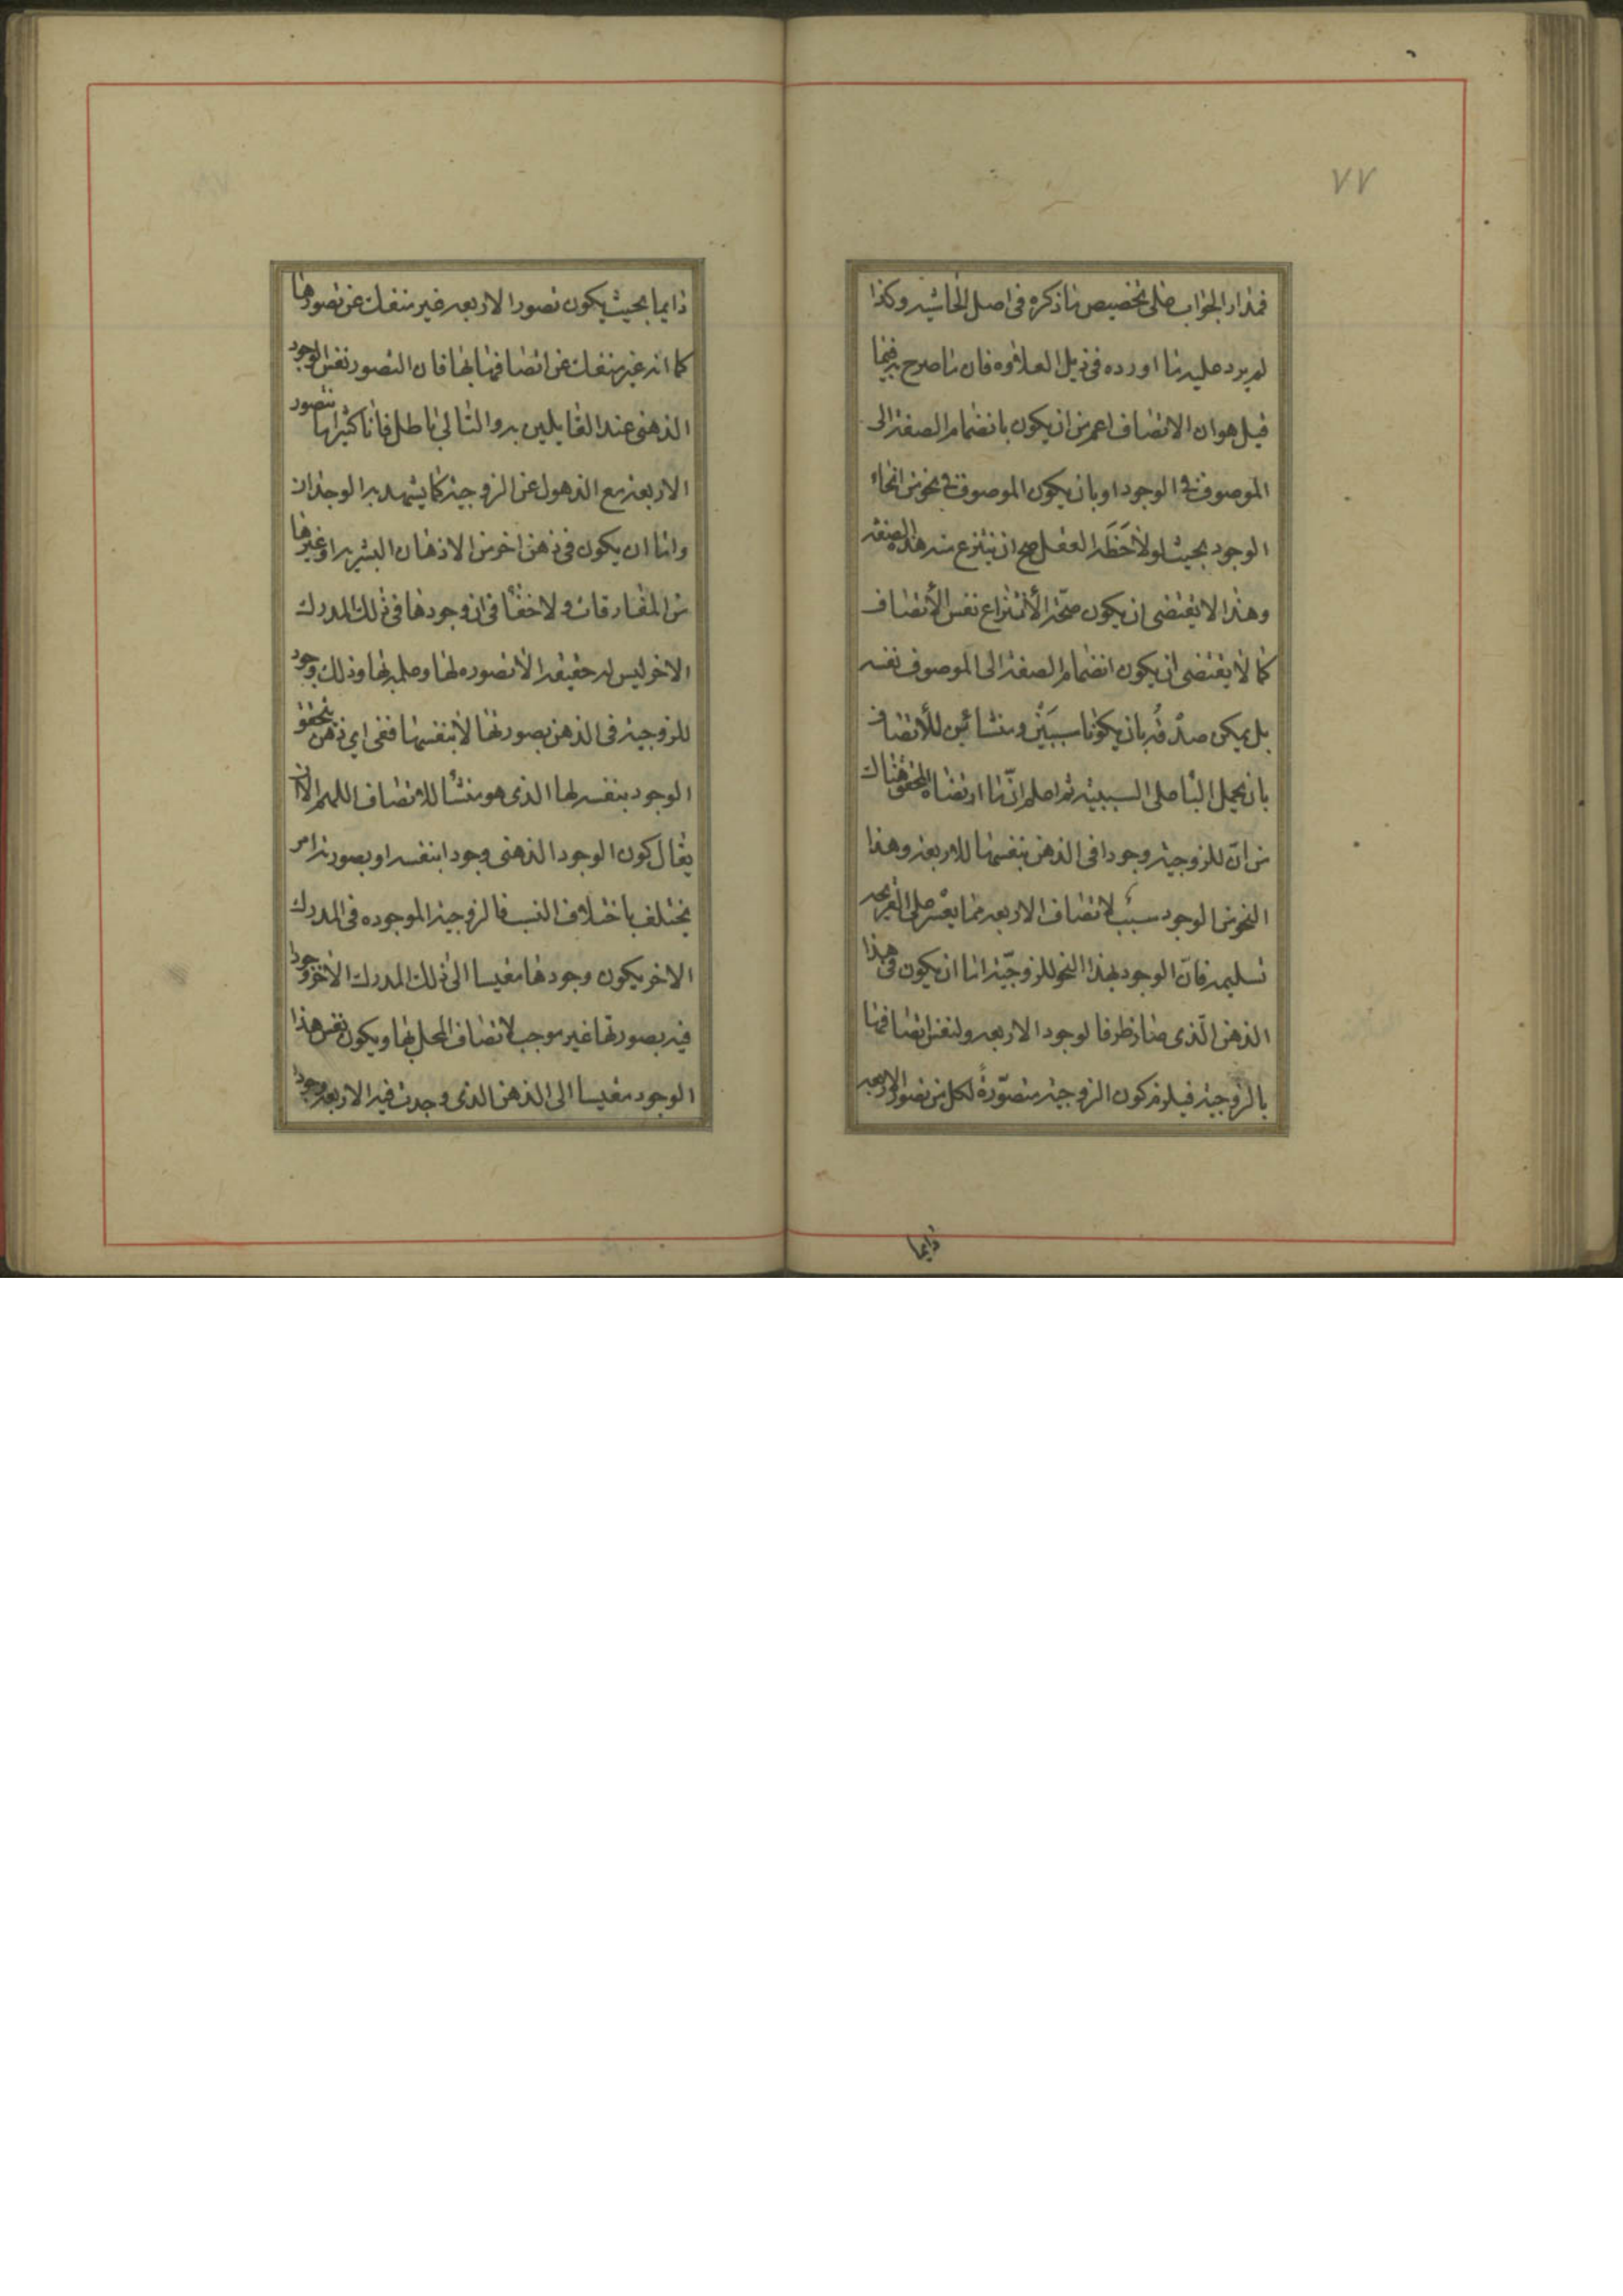 ٧٧
فمدار الجواب على تخصيص ما ذكره فى اصل الحاشيه وكذا
لم يرد عليه ما اورده فى ذيل العلاوه فان ما صرح به فيما
قبل هو ان الاتصاف اعم من ان يكون بانضمام الصفة الى
الموصوف فى الوجود او بان يكون الموصوف فى نحو من انحاء
الوجود بحيث لو لاحَظَه العقل صح ان ينتزع منه هذه الصفه
وهذا لا يقتضى ان يكون صحّة الأنتزاع نفس الأتصاف
كما لا يقتضى ان يكون انضمام الصفة الى الموصوف نفسه
بل يمكن صدقه بان يكونا سببَين ومنشائين للأتصاف
بان يحمل الباء على السببية ثم اعلم انّ ما ارتضاه المحقق هناك
من انّ للزوجية وجودا فى الذهن بنفسها للاربعة وهذا
النحو من الوجود سبب لاتصاف الاربعه مما يعسر على القريحه
تسليمه فانّ الوجود بهذا النحو للزوجيّة اما ان يكون فى هذا
الذهن الّذى صار ظرفا لوجود الاربعه ولنفس اتصافها
بالزوجية فيلزم كون الزوجية متصوّرةً لكل من تصور الاربعه
دايما
دايما بحيث يكون تصور الاربعه غير منفك عن تصورها
كما انه غير منفك عن اتصافها بها فان التصور نفس الوجود
الذهنى عند القايلين به والتالى باطل فانا كثيرا ما نتصور
الاربعة مع الذهول عن الزوجية كما يشهد به الوجدان
واما ان يكون فى ذهن اخر من الاذهان البشريه او غيرها
من المفارقات ولا خفأ فى ان وجودها فى ذلك المدرك
الاخر ليس له حقيقه الا تصوره لها وعلمه بها وذلك وجود
للزوجية فى الذهن بصورتها لا بنفسها ففى اي ذهن يتحقق
الوجود بنفسه لها الذى هو منشأ للاتصاف اللهم الا ان
يقال كون الوجود الذهنى وجودا بنفسه او بصورته امر
يختلف باختلاف النسب فالزوجية الموجوده فى المدرك
الاخر يكون وجودها مقيسا الى ذلك المدرك الاخر وجودا
فيه بصورتها غير موجب لاتصاف المحل بها ويكون نفس هذا
الوجود مقيسا الى الذهن الذى وجدت فيه الاربعه وجودا